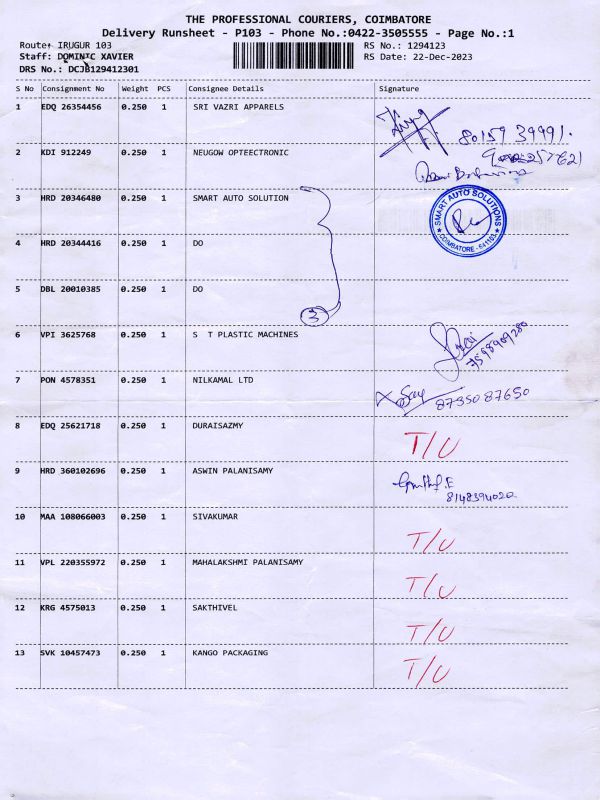 THE PROFESSIONAL COURIERS, COIMBATORE
Delivery Runsheet - P103 - Phone No.:0422-3505555 - Page No.:1
Route: IRUGUR 103 RS No.: 1294123
Staff: DOMINIC XAVIER RS Date: 22-Dec-2023
DRS No.: DCJB129412301
S No Consignment No Weight PCS Consignee Details Signature
1 EDQ 26354456 0.250 1 SRI VAZRI APPARELS
80159 39991.
2 KDI 912249 0.250 1 NEUGOW OPTEECTRONIC
3 HRD 20346480 0.250 1 SMART AUTO SOLUTION
SMART AUTO SOLUTIONS
COIMBATORE - 641103
4 HRD 20344416 0.250 1 DO
5 DBL 20010385 0.250 1 DO
3
6 VPI 3625768 0.250 1 S T PLASTIC MACHINES
7598909280
7 PON 4578351 0.250 1 NILKAMAL LTD
87350 87650
8 EDQ 25621718 0.250 1 DURAISAZMY T/U
9 HRD 360102696 0.250 1 ASWIN PALANISAMY
8148394020
10 MAA 108066003 0.250 1 SIVAKUMAR T/U
11 VPL 220355972 0.250 1 MAHALAKSHMI PALANISAMY T/U
12 KRG 4575013 0.250 1 SAKTHIVEL T/U
13 SVK 10457473 0.250 1 KANGO PACKAGING T/U